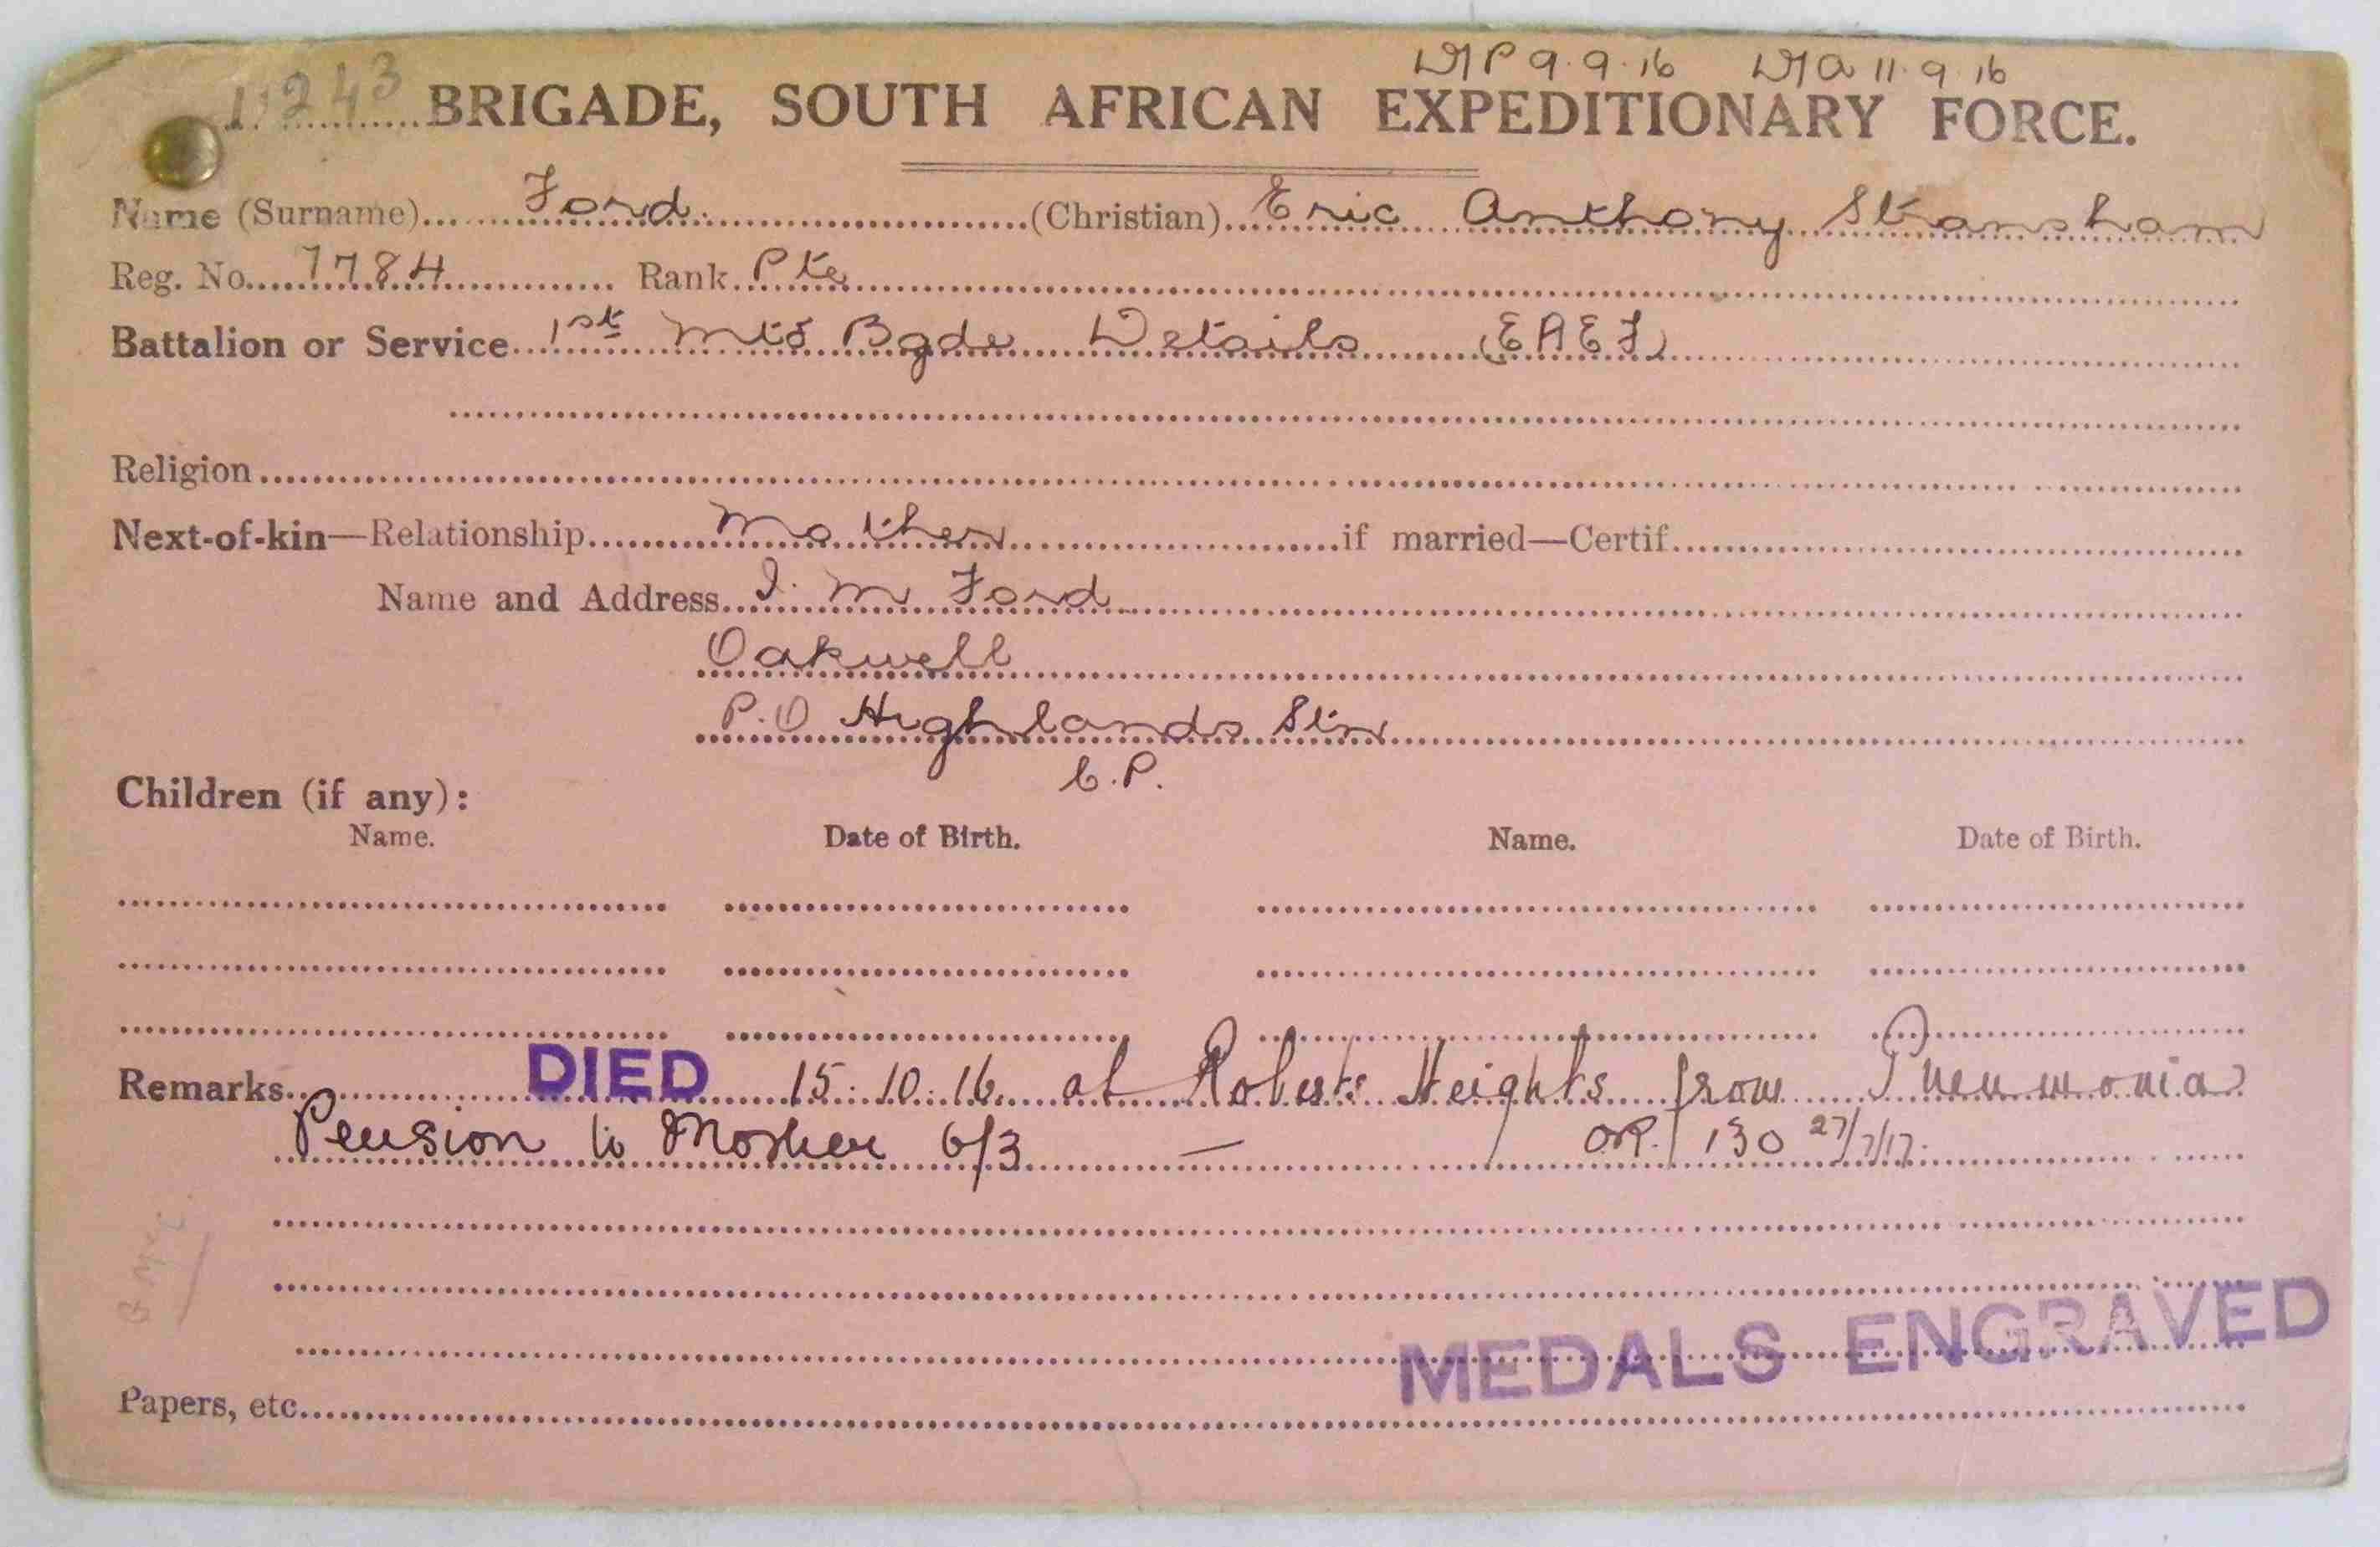 DTP 9.9.16 DTA 11.9.16
11243 BRIGADE, SOUTH AFRICAN EXPEDITIONARY FORCE.
Name (Surname) Ford (Christian) Eric Anthony Stransham
Reg. No. 7784 Rank Pte
Battalion or Service 1st Mtd Bgde Details (EAEF)
Religion
Next-of-kin—Relationship Mother if married—Certif.
Name and Address I. M Ford
Oakwell
P.O Highlands Stn
C.P.
Children (if any):
Name. Date of Birth. Name. Date of Birth.
Remarks DIED 15.10.16 at Roberts Heights from Pneumonia
Pension to Mother 6/3 — O.R. 130 27/7/17.
MEDALS ENGRAVED
Papers, etc.